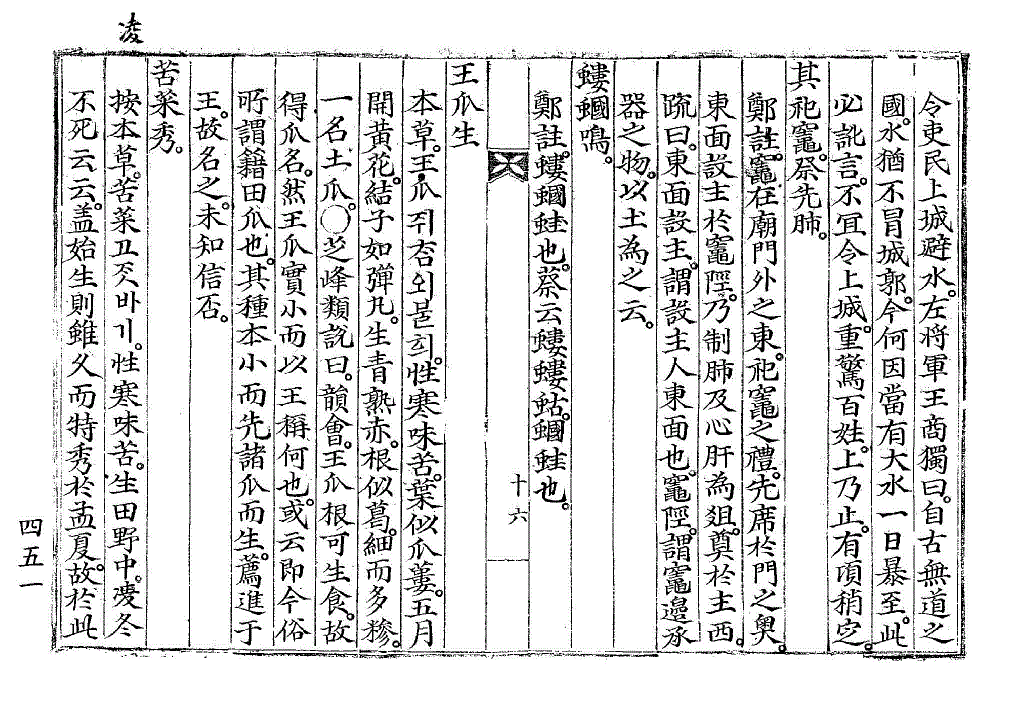 令吏民上城避水。左將軍王商獨曰。自古無道之
國。水猶不冒城郭。今何因當有大水一日暴至。此
必訛言。不冝令上城。重驚百姓。上乃止。有頃稍定。
其祀竈。祭先肺。
鄭註。竈在廟門外之東。祀竈之禮。先席於門之奥。
東面設主於竈陘。乃制肺及心肝為俎。奠於主西。
疏曰。東面設主。謂設主人東面也。竈陘。謂竈邉承
器之物。以土為之云。
螻蟈鳴。
鄭註。螻蟈蛙也。蔡云螻螻蛄。蟈蛙也。
十六
王瓜生
本草。王瓜쥐참외불희。性寒味苦。葉似瓜蔞。五月
開黃花。結子如彈凡。生青熟赤。根似葛。細而多糝。
一名土瓜。○芝峰類說曰。韻會。王瓜根可生食。故
得瓜名。然王瓜實小而以王稱何也。或云即今俗
所謂籍田瓜也。其種本小而先諸瓜而生。薦進于
王。故名之。未知信否。
苦菜秀。
按本草。苦菜고ᄌᆞᆺ바기。性寒味苦。生田野中。凌冬
不死云云。盖始生則雖久而特秀於孟夏。故於此
凌
四五一